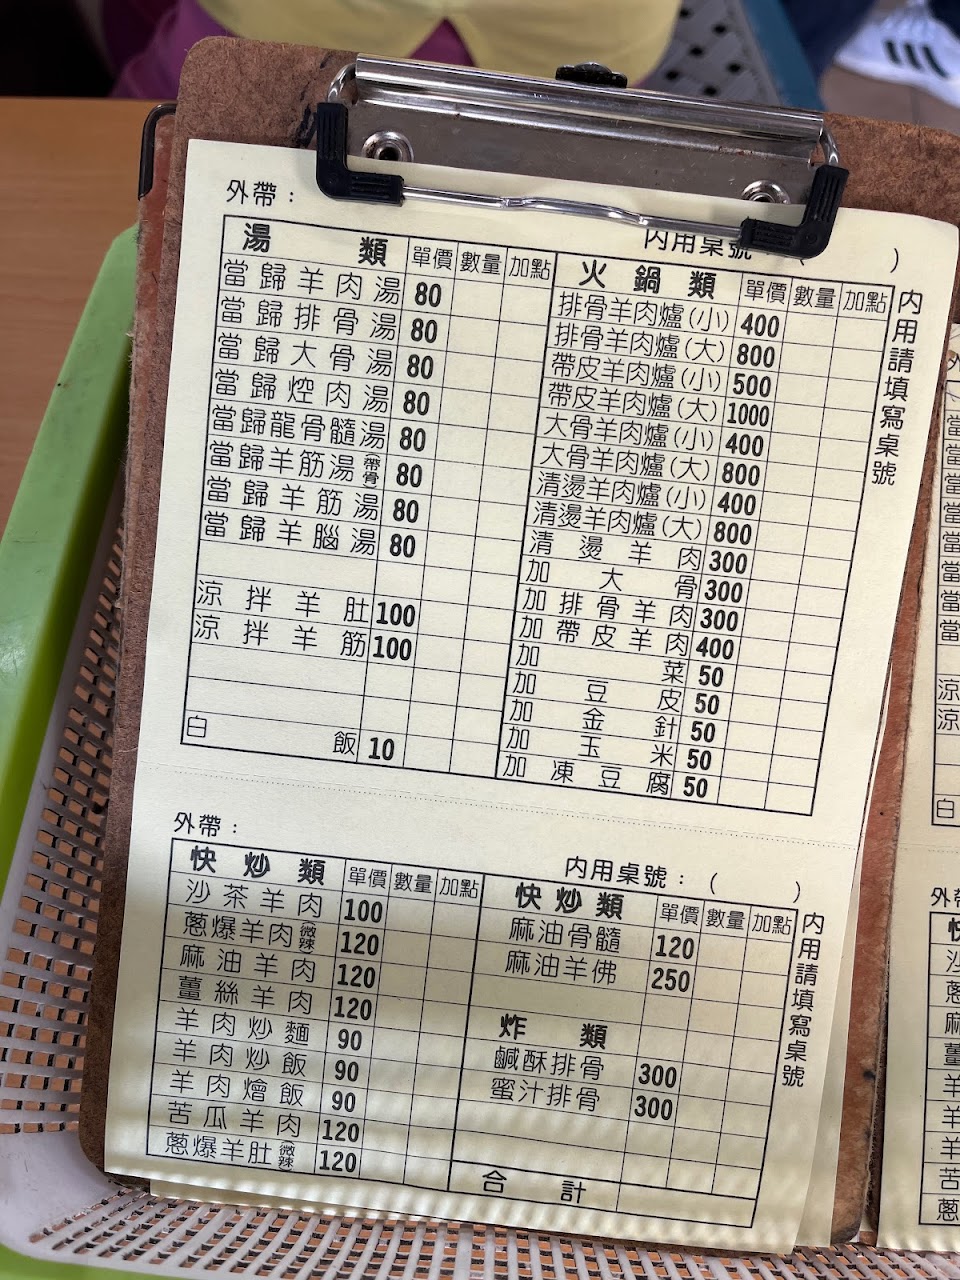 外帶：
內用桌號（　　）
湯類 單價 數量 加點
當歸羊肉湯 80
當歸排骨湯 80
當歸大骨湯 80
當歸焢肉湯 80
當歸龍骨髓湯 80
當歸羊筋湯(帶骨) 80
當歸羊筋湯 80
當歸羊腦湯 80
涼拌羊肚 100
涼拌羊筋 100
白飯 10
火鍋類 單價 數量 加點
排骨羊肉爐(小) 400
排骨羊肉爐(大) 800
帶皮羊肉爐(小) 500
帶皮羊肉爐(大) 1000
大骨羊肉爐(小) 400
大骨羊肉爐(大) 800
清燙羊肉爐(小) 400
清燙羊肉爐(大) 800
清燙羊肉 300
加大骨 300
加排骨羊肉 300
加帶皮羊肉 400
加菜 50
加豆皮 50
加金針 50
加玉米 50
加凍豆腐 50
內用請填寫桌號
外帶：
內用桌號：（　　）
快炒類 單價 數量 加點
沙茶羊肉 100
蔥爆羊肉(微辣) 120
麻油羊肉 120
薑絲羊肉 120
羊肉炒麵 90
羊肉炒飯 90
羊肉燴飯 90
苦瓜羊肉 120
蔥爆羊肚(微辣) 120
快炒類 單價 數量 加點
麻油骨髓 120
麻油羊佛 250
炸類
鹹酥排骨 300
蜜汁排骨 300
合計
內用請填寫桌號